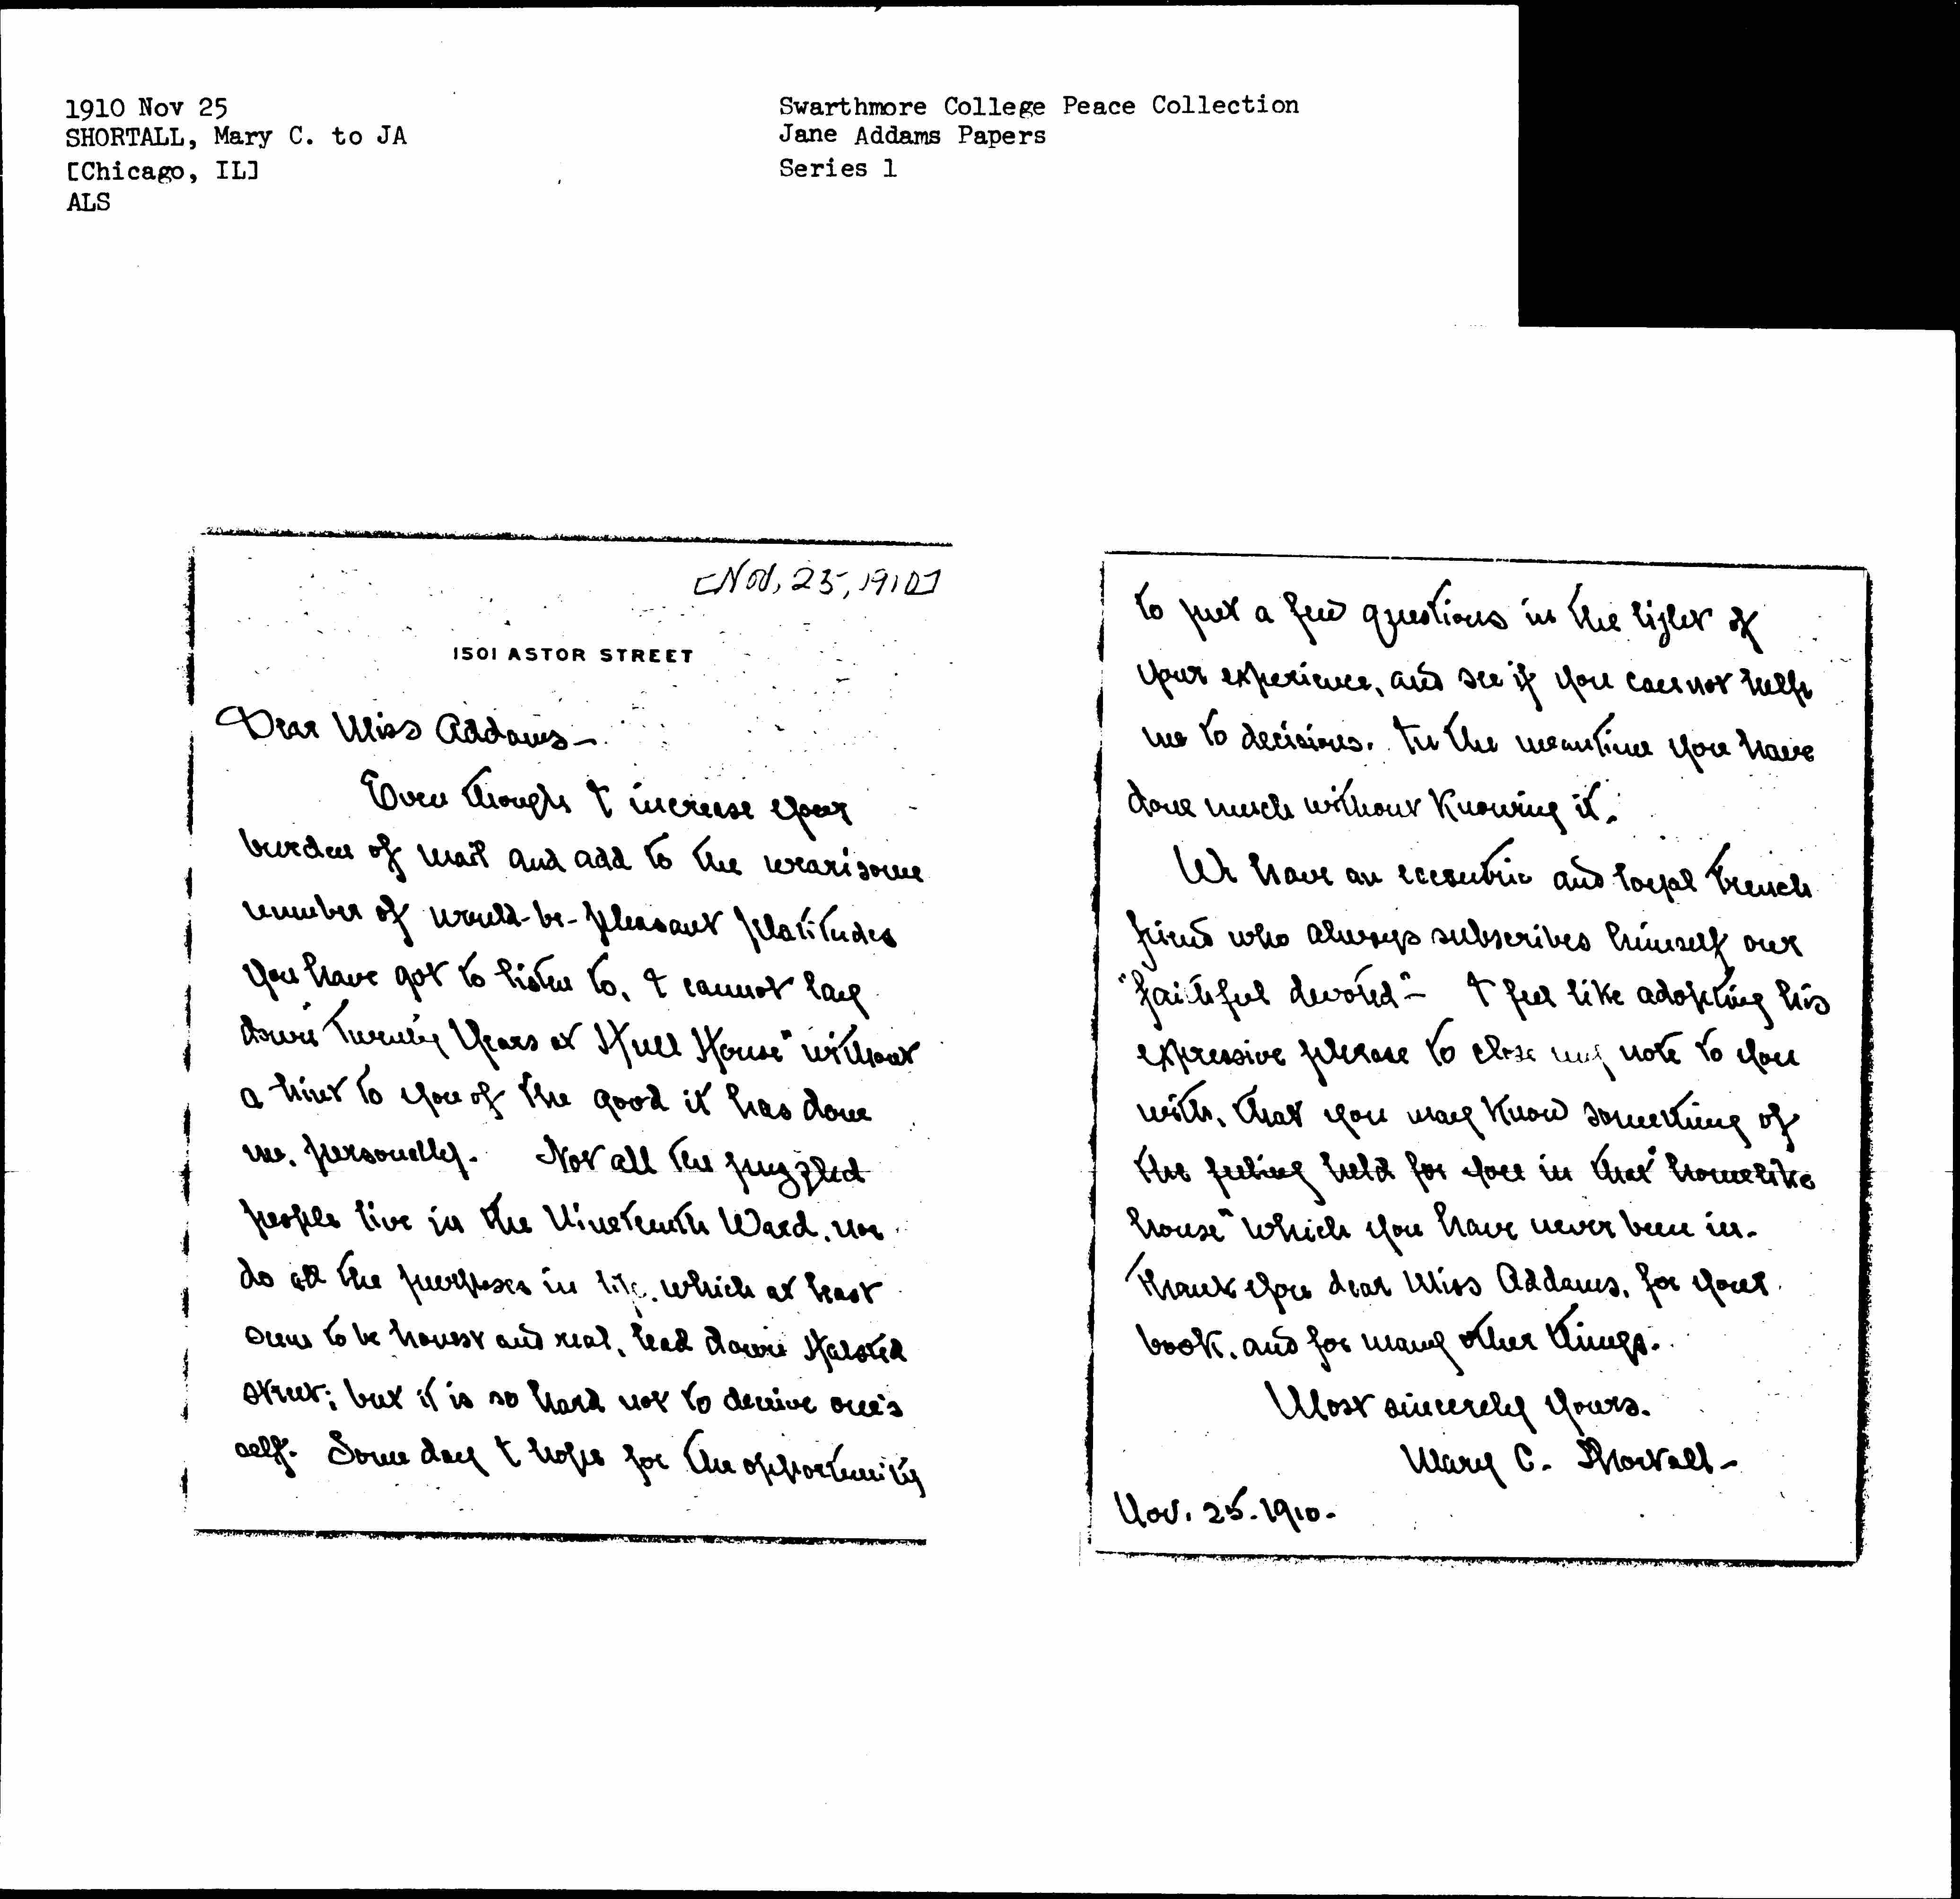 1910 Nov 25
SHORTALL, Mary C. to JA
[Chicago, IL]
ALS
Swarthmore College Peace Collection
Jane Addams Papers
Series 1
[Nov, 25, 1910]
1501 ASTOR STREET
Dear Miss Addams -
Even though I increase your
burden of mail and add to the wearisome
number of would-be-pleasant platitudes
you have got to listen to, I cannot lay
down "Twenty Years at Hull House" without
a hint to you of the good it has done
me, personally. Not all the puzzled
people live in the Nineteenth Ward, nor
do all the purposes in life, which at least
seem to be honest and real, lead down Halsted
street; but it is so hard not to deceive one's
self. Some day I hope for the opportunity
to put a few questions in the light of
your experience, and see if you can not help
me to decisions. In the meantime you have
done much without knowing it.
We have an eccentric and loyal French
friend who always subscribes himself our
"faithful devoted" - I feel like adopting his
expressive phrase to close my note to you
with, that you may know something of
the feeling held for you in that "homelike
house" which you have never been in.
Thank you dear Miss Addams, for your
book, and for many other things.
Most sincerely yours.
Mary C. Shortall -
Nov. 25. 1910.